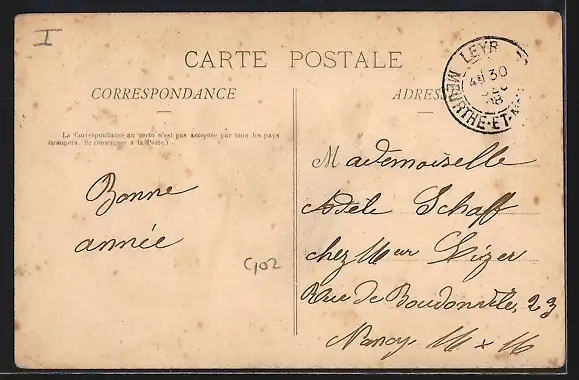 I
CARTE POSTALE
CORRESPONDANCE
ADRESS
La Correspondance au recto n'est pas acceptée par tous les pays
étrangers. Se renseigner à la Poste.)
Bonne
année
C102
LEYR
30
08
MEURTHE-ET-M
Mademoiselle
Adèle Schaff
chez Mur
Rue de Boudonville, 23
Nancy M x M